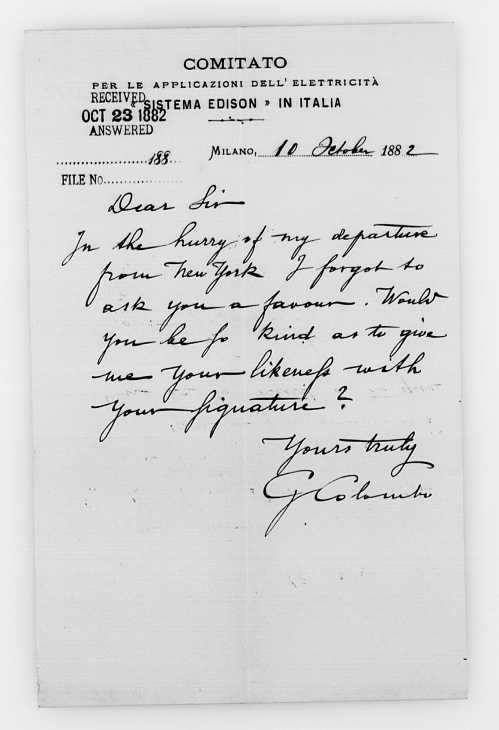 COMITATO
PER LE APPLICAZIONI DELL'ELETTRICITÀ
« SISTEMA EDISON » IN ITALIA
RECEIVED
OCT 23 1882
ANSWERED
188
FILE No.
MILANO, 10 October 1882
Dear Sir
In the hurry of my departure
from New York I forgot to
ask you a favour. Would
you be so kind as to give
me your likeness with
your signature?
Yours truly
G Colombo